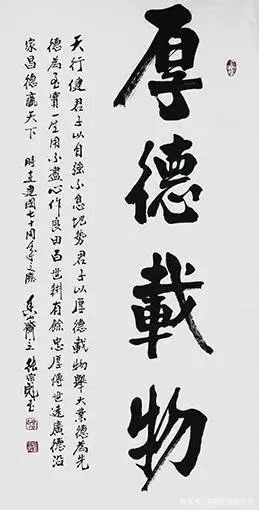 厚德載物
天行健君子以自强不息地势君子以厚德載物舉大業德為先
德為至寶一生用不盡心作良田百世耕有餘忠厚傳世遠廣德沿
家昌德贏天下 時在建國七十周年之際 齋主 張